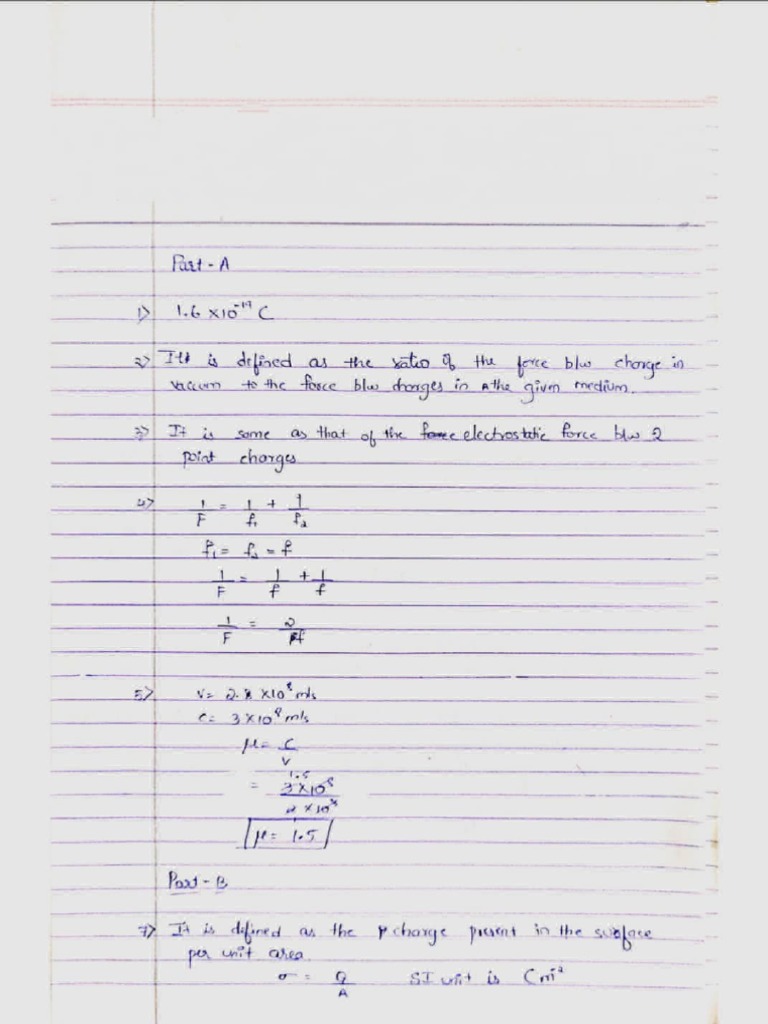 Part-A
1) 1.6 ×10⁻¹⁹ C
2) It is defined as the ratio of the force b/w charge in
vaccum to the force b/w charges in the given medium.
3) It is same as that of the electrostatic force b/w 2
point charges
4) 1/F = 1/f₁ + 1/f₂
f₁ = f₂ = f
1/F = 1/f + 1/f
1/F = 2/f
5) v= ×10⁸ m/s
c= 3×10⁸ m/s
μ= c/v
1.5
= 3×10⁸/2×10⁸
μ= 1.5
Part-B
7) It is defined as the charge present in the surface
per unit area.
σ = Q/A SI unit is Cm⁻²